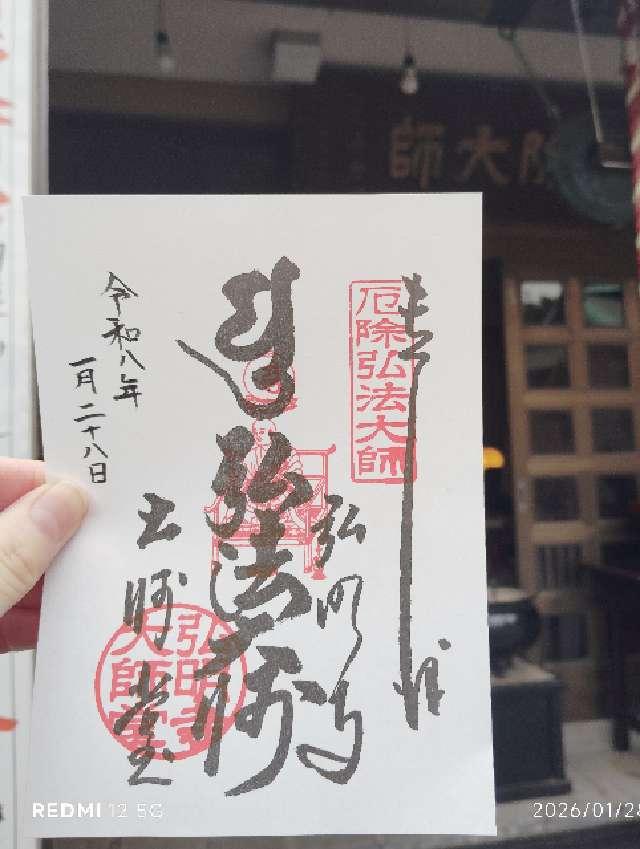 大師
奉拝
厄除弘法大師
弘法大師
弘明寺
大師堂
弘明寺
大師堂
令和八年
一月二十八日
REDMI 12 5G
2026/01/28